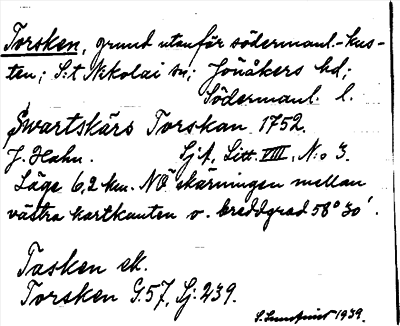 Torsken, grund utanför södermanl.-kus-
ten; S:t Nikolai sn; Jönåkers hd;
Södermanl. l.
Swartskärs Torskan 1752.
J. Hahn. SjA, Litt. VIII, N:o 3.
Läge 6,2 km. NÖ skärningen mellan
västra kartkanten o. breddgrad 58° 30'.
Tasken ek.
Torsken G.57, Sj: 239.
1939.